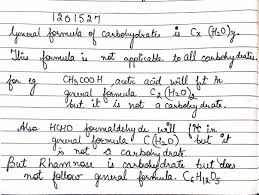 1201527
General formula of carbohydrates is Cx (H2O)y.
This formula is not applicable to all carbohydrates.
for eg. CH3COOH, acetic acid will fit in
general formula C2(H2O)2
but it is not a carbohydrate.
Also HCHO formaldehyde will fit in
general formula C(H2O) but it
is not a carbohydrate
But Rhamnose is carbohydrate but does
not follow general formula. C6H12O5